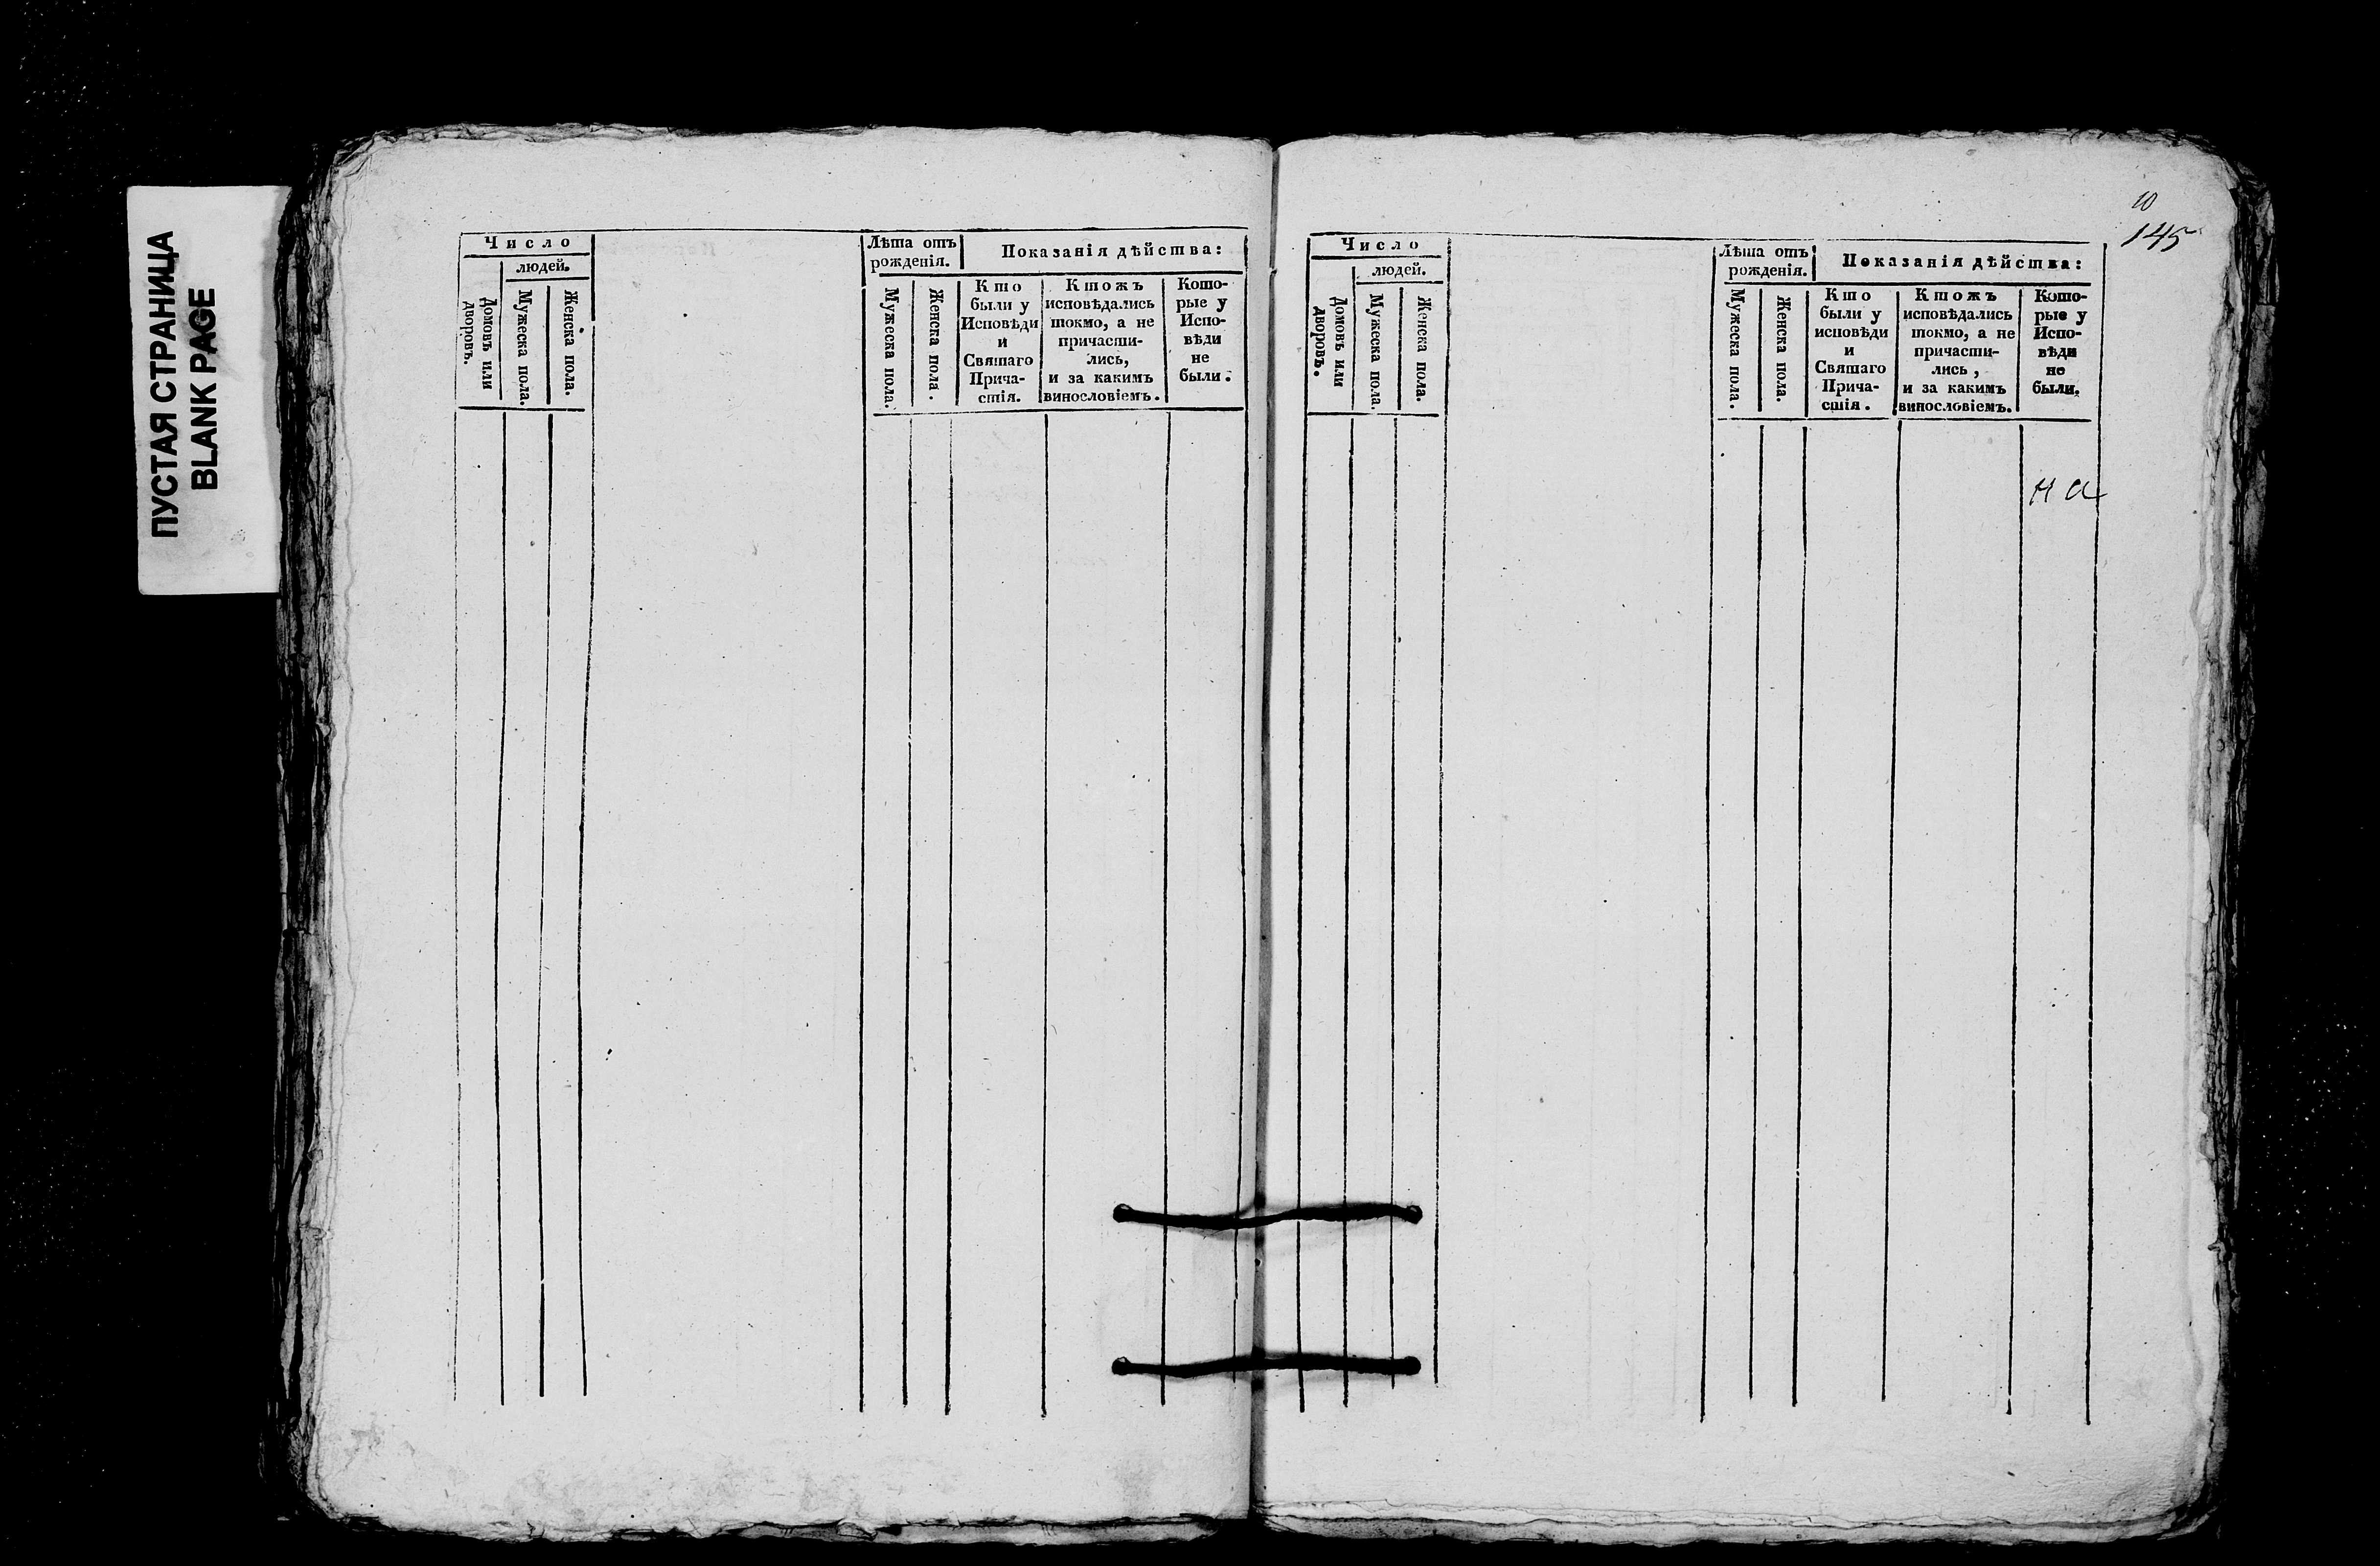 ПУСТАЯ СТРАНИЦА
BLANK PAGE
Число
людей.
Домовъ или
дворовъ.
Мужеска пола.
Женска пола.
Лѣта отъ
рожденія.
Мужеска пола.
Женска пола.
Показанія дѣйства:
Кто
были у
Исповѣди
и
Святаго
Прича-
стія.
Ктожъ
исповѣдались
токмо, а не
причасти-
лись,
и за какимъ
винословіемъ.
Кото-
рые у
Испо-
вѣди
не
были.
10
145
Число
людей.
Домовъ или
дворовъ.
Мужеска пола.
Женска пола.
Лѣта отъ
рожденія.
Мужеска пола.
Женска пола.
Показанія дѣйства:
Кто
были у
исповѣди
и
Святаго
Прича-
стія.
Ктожъ
исповѣдались
токмо, а не
причасти-
лись,
и за какимъ
винословіемъ.
Кото-
рые у
Испо-
вѣди
не
были.
на